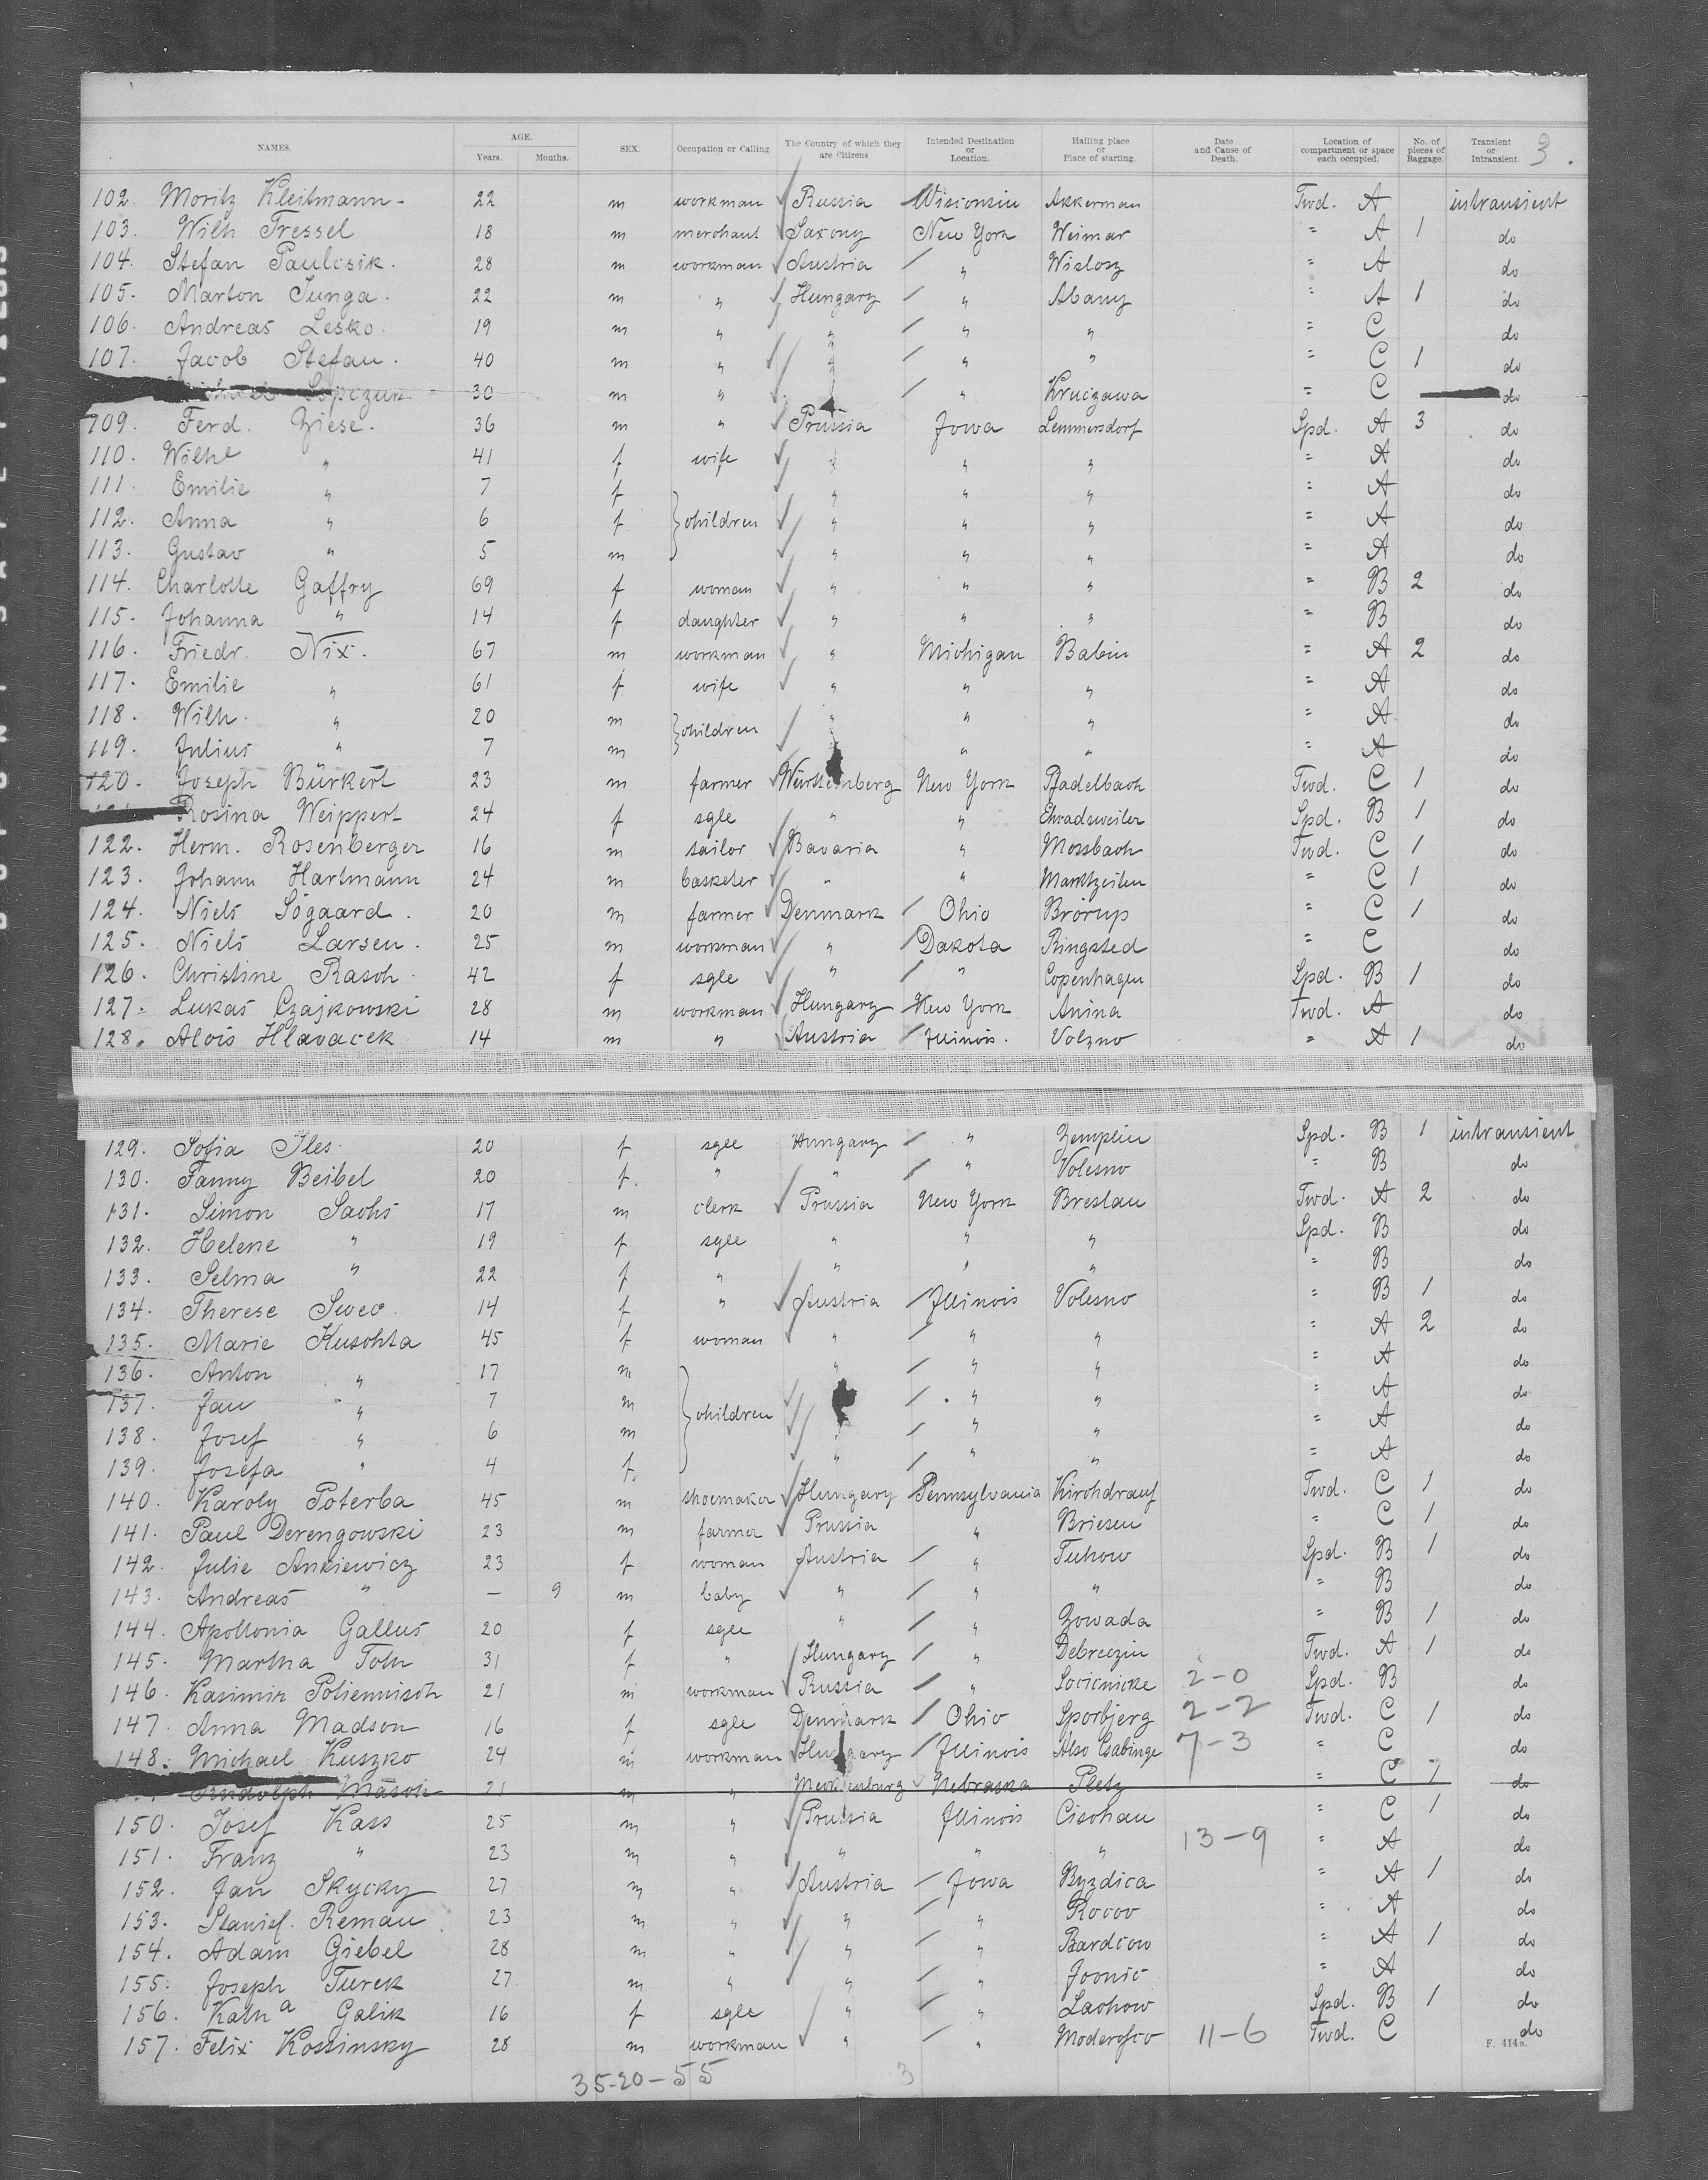 NAMES. AGE. Years. Months. SEX. Occupation or Calling The Country of which they are Citizens Intended Destination or Location. Hailing place or Place of starting. Date and Cause of Death. Location of compartment or space each occupied. No. of pieces of Baggage. Transient or Intransient. 3.
102. Moritz Kleitmann - 22 m workman Russia Wisconsin Akkerman Twd. A intransient
103. Wilh Tressel 18 m merchant Saxony New York Weimar " A 1 do
104. Stefan Paulcsik. 28 m workman Austria " Wislosz " A do
105. Marton Junga. 22 m " Hungary " Abany " A 1 do
106. Andreas Lesko. 19 m " " " " " C do
107. Jacob Stefan. 40 m " " " " " C 1 do
30 m " " Kruczawa " C do
109. Ferd. Ziese. 36 m " Prussia Jowa Lemmersdorf Spd. A 3 do
110. Wilhe " 41 f wife " " " " A do
111. Emilie " 7 f " " " " A do
112. Anna " 6 f children " " " " A do
113. Gustav " 5 m " " " " A do
114. Charlotte Gaffry 69 f woman " " " " B 2 do
115. Johanna " 14 f daughter " " " " B do
116. Friedr. Nix. 67 m workman " Michigan Babin " A 2 do
117. Emilie " 61 f wife " " " " A do
118. Wilh. " 20 m children " " " " A do
119. Julius " 7 m " " " A do
120. Joseph Bürkert 23 m farmer Württemberg New York Pfadelbach Twd. C 1 do
Rosina Weippert 24 f sgle " " Spd. B 1 do
122. Herm. Rosenberger 16 m sailor Bavaria " Mossbach Twd. C 1 do
123. Johann Hartmann 24 m basketer " " Marktzeiln " C 1 do
124. Niels Sögaard. 20 m farmer Denmark Ohio Brörup " C 1 do
125. Niels Larsen. 25 m workman " Dakota Ringsted " C do
126. Christine Rasch. 42 f sgle " " Copenhagen Spd. B 1 do
127. Lukas Czajkowski 28 m workman Hungary New York Anina Twd. A do
128. Alois Hlavacek 14 m " Austria Jllinois. Volzno " A 1 do
129. Sofia Jles. 20 f sgle Hungary " Zemplin Spd. B 1 intransient
130. Fanny Beibel 20 f. " " " Volesno " B do
131. Simon Sachs 17 m clerk Prussia New York Breslau Twd. A 2 do
132. Helene " 19 f sgle " " " Spd. B do
133. Selma " 22 f " " " " " B do
134. Therese Swec. 14 f " Austria Jllinois Volesno " B 1 do
135. Marie Kuschta 45 f woman " " " " A 2 do
136. Anton " 17 m " " " " A do
137. Jan " 7 m children " " " A do
138. Josef " 6 m " " " A do
139. Josefa " 4 f. " " " " A do
140. Karoly Poterba 45 m shoemaker Hungary Pennsylvania Kirchdrauf Twd. C 1 do
141. Paul Derengowski 23 m farmer Prussia " Briesen " C 1 do
142. Julie Ankiewicz 23 f woman Austria " Tuhow Spd. B 1 do
143. Andreas " — 9 m baby " " " " B do
144. Apollonia Gallus 20 f sgle " " Zowada " B 1 do
145. Martha Toth 31 f " Hungary " Debreczin Twd. A 1 do
146. Kasimir Poliemisch 21 m workman Russia " Socicnicke 2-0 Spd. B do
147. Anna Madson 16 f sgle Denmark Ohio Sporbjerg 2-2 Twd. C 1 do
148. Michael Kuszko 24 m workman Hungary Jllinois Also Csabinge 7-3 " C do
Rudolph Masch 21 m " Mecklenburg Nebraska Pletz " C 1 do
150. Josef Kass 25 m " Prussia Jllinois Cischau " C 1 do
151. Franz " 23 m " " " " 13-9 " A do
152. Jan Skycky 27 m " Austria Jowa Byzdica " A 1 do
153. Stanisl. Reman 23 m " " " Rocov " A do
154. Adam Giebel 28 m " " " Bardcow " A 1 do
155. Joseph Turek 27 m " " " Joonic " A do
156. Katha Galik 16 f sgle " " Lachow Spd. B 1 do
157. Felix Kossinsky 28 m workman " " 11-6 Twd. C do
F. 414a.
35-20-55 3